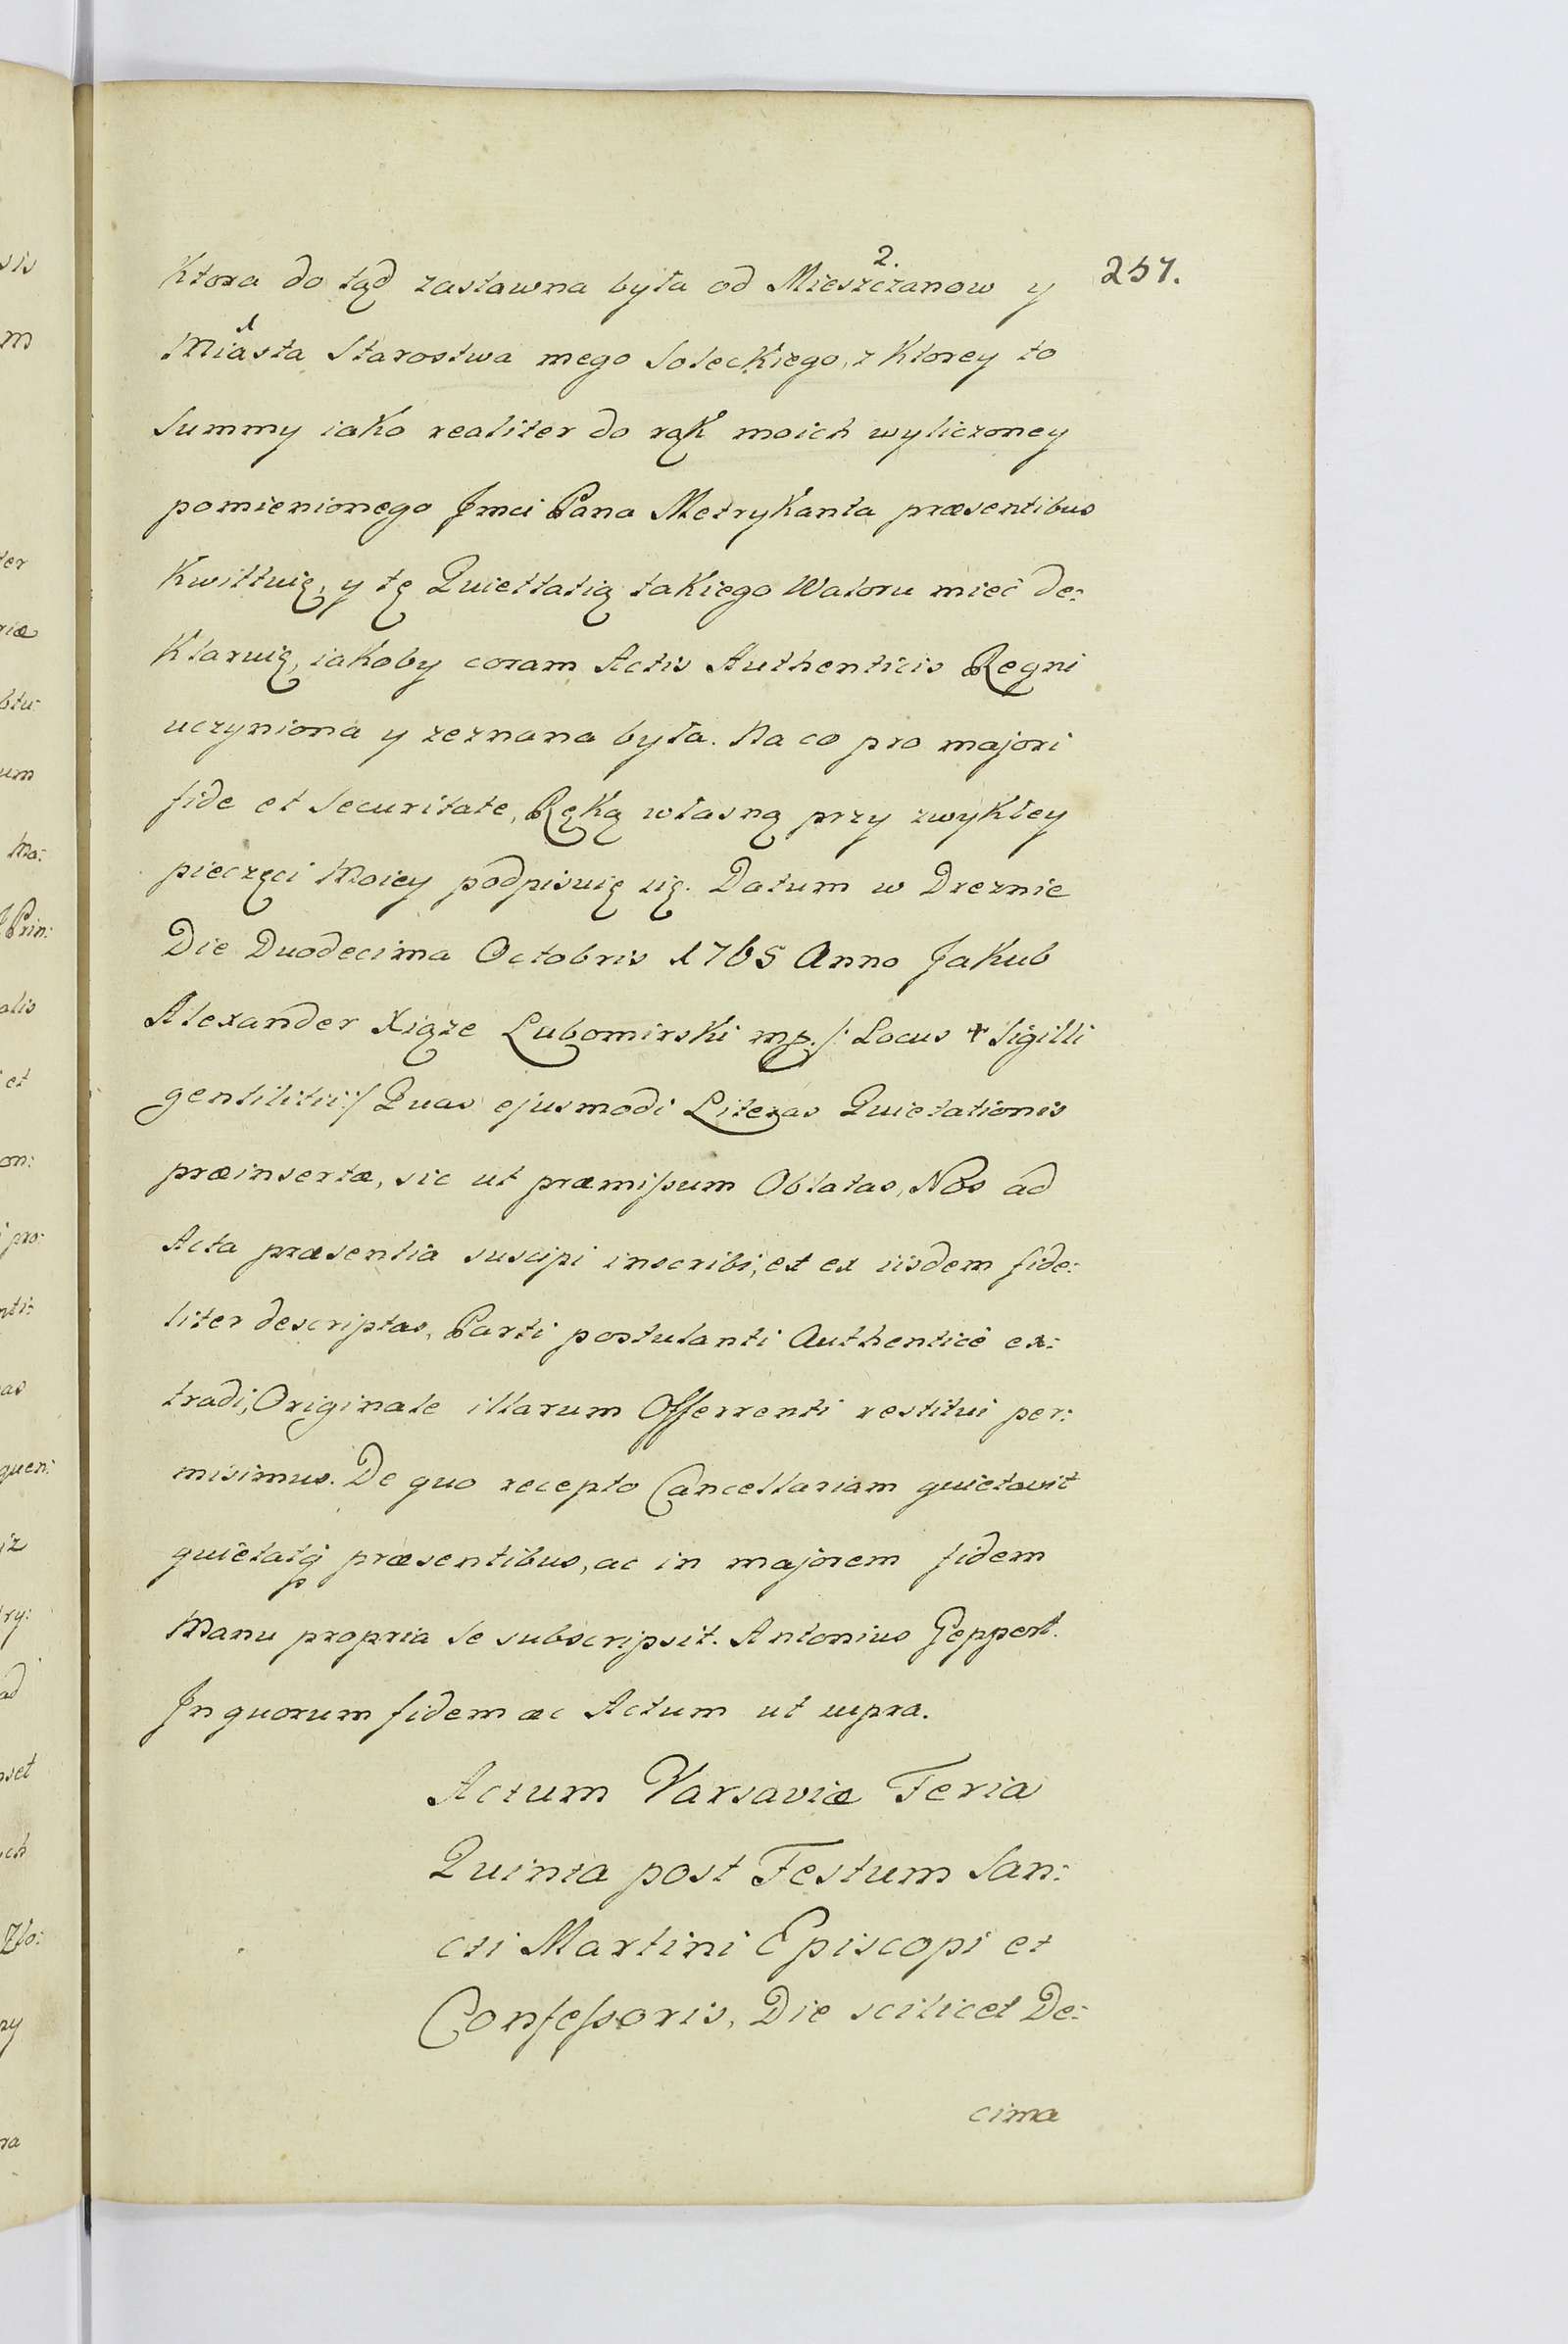 257.
Ktora do tąd zastawna była od Mieszczanow 2. y
Miasta 1 Starostwa mego Soleckiego, z Ktorey to
Summy iako realiter do rąk moich wyliczoney
pomienionego Jmci Pana Metrykanta præsentibus
Kwittuię, y tę Quiettatią takiego Waloru mieć de:
Klaruię, iakoby coram Actis Authenticis Regni
uczyniona y zeznana była. Na co pro majori
fide et Securitate, Ręką własną przy zwykłey
pieczęci Moiey podpisuię się. Datum w Dreznie
Die Duodecima Octobris 1765 Anno Jakub
Alexander Xiąze Lubomirski mp. /: Locus + Sigilli
gentilitii :/ Quas ejusmodi Literas Quietationis
præinsertæ, sic ut præmissum Oblatas, Nos ad
Acta præsentia suscipi inscribi, et ex iisdem fide:
liter descriptas, Parti postulanti Authenticè ex:
tradi, Originale illarum Offerrenti restitui per:
misimus. De quo recepto Cancellariam quietavit
quietatq præsentibus, ac in majorem fidem
Manu propria se subscripsit. Antonius Geppert.
In quorum fidem ac Actum ut supra.
Actum Varsaviæ Feria
Quinta post Festum San:
cti Martini Episcopi et
Confessoris, Die scilicet De:
cima